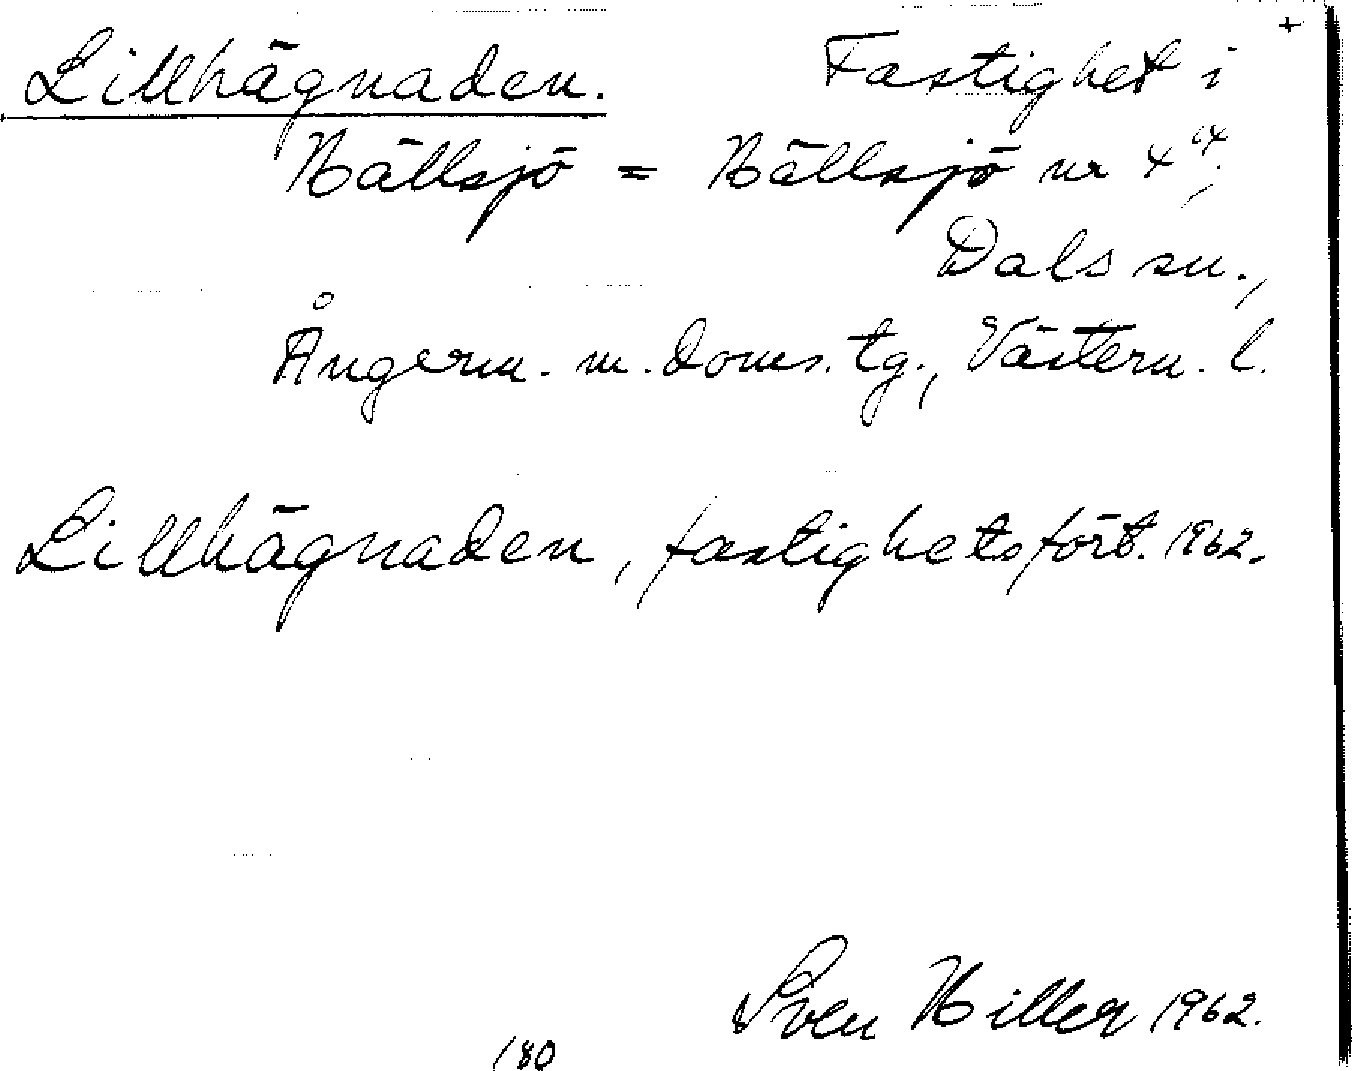 +
Lillhägnaden. Fastighet i
Hällsjö = Hällsjö nr 4
Dals sn.,
Ångerm. m. doms. tg., Västern. l.
Lillhägnaden, fastighetsfört. 1962.
Sven Hiller 1962.
180